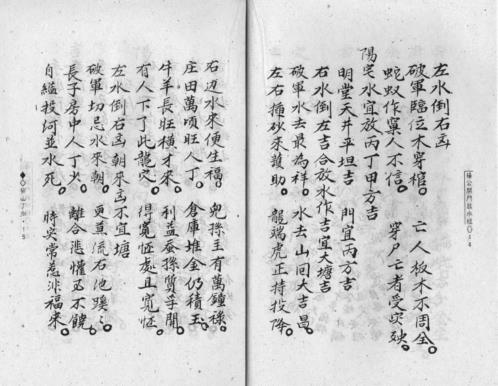 左水倒右凶
破軍臨位木穿棺　亡人板木不周全
蛇蚁作窠人不信　穿尸亡者受災殃
陽宅水宜放丙丁甲方吉
明堂天井平坦吉　門宜丙方吉
右水倒左吉合放水作吉宜大塘吉
破軍水去最為祥　水去山囘大吉昌
左右揷砂來護助　龍端虎正持投降
右边水來便生福　兒孫主有萬鍾祿
庄田萬頃旺人丁　倉庫堆金仍積玉
牛羊長旺横才來　利益蚕孫貿手開
有人下了此龍穴　得寬怀處且寬怀
左水倒右凶朝來凶不宜塘
破軍切忌水來朝　更莫流石池蹊
長子房中人丁火　離合悲懽不饒
自縊投河並水死　時灾常惹非福來
14
山丁向
15